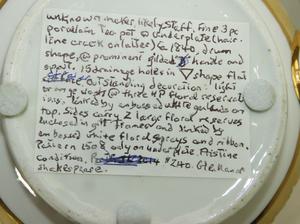 unknown maker, likely Staff. Fine 3pc
porcelain tea pot @ underplate (hair-
line crack on latter) Ca 1840, drum
shape, @ prominent gilded handle and
spout. 18 drainage holes in ▽ shape flat
Outstanding decoration: light
orange @ thick floral reserva-
tions, band by embossed white garlands on
top. Sides carry 2 large floral reserves
enclosed in gilt frames and flanked by
embossed white floral sprays and ribbon.
Pattern 1508 only on underplate. Pristine
condition. $240. Gtd. Hand